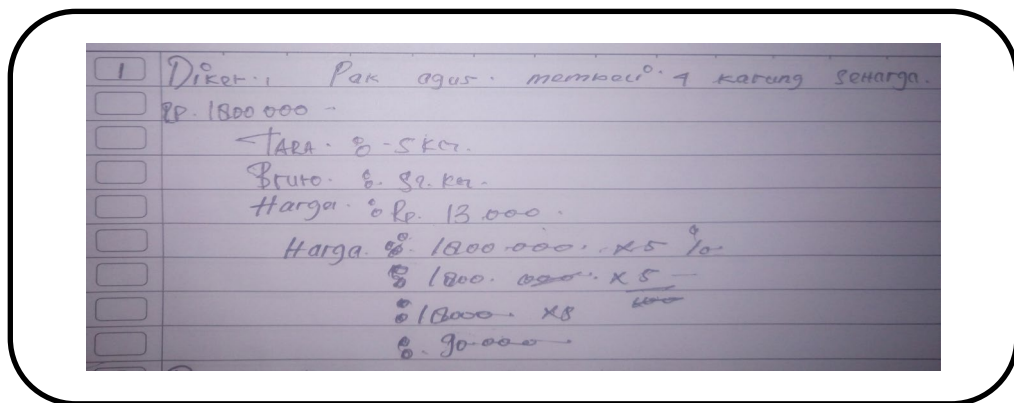 1 Diket., Pak agus. membeli 4 karung seharga.
Rp. 1800 000 -
TARA. : -5 KG.
Bruto. :. 52. KG.
Harga. : Rp. 13.000.
Harga. :. 1800 000. . x5 %
: 1800. 000. x 5
100
: 18000. x5
:. 90.000